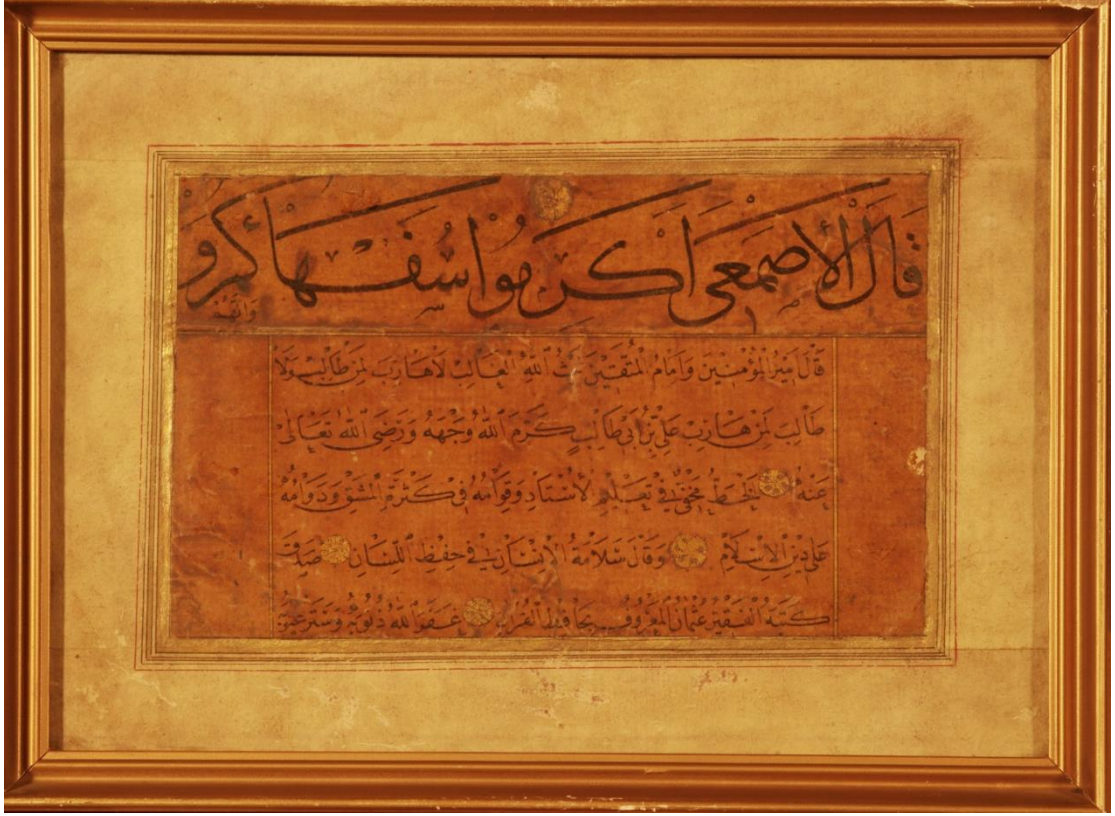 قَالَ الْأَصْمَعِي اَكْرِمُوا سُفَهَاءَكُمْ وَ
قَالَ اَمِيرُ الْمُؤْمِنِينَ وَاِمَامُ الْمُتَّقِينَ اَللّٰهِ الْغَالِبْ لَاهَارِبَ لِمَنْ طَالَبَ وَلَا
طَالِبَ لِمَنْ هَارِبْ عَلِيِّ بْنُ اَبِى طَالِبٍ كَرَّمَ اللّٰهُ وَجْهَهُ وَرَضِىَ اللّٰهُ تَعَالٰى
عَنْهُ اَلْخَطُّ مَخْفِىٌّ فِى تَعْلِيمِ الْاُسْتَادِ وَقِوَامُهُ فِى كَثْرَةِ الْمَشْقِ وَدَوَامُهُ
عَلٰى دِينِ الْاِسْلَامْ وَقَالَ سَلَامَةُ الْاِنْسَانِ فِى حِفْظِ اللِّسَانْ صَدَقَ
كَتَبَهُ الْفَقِيرُ عُثْمَانُ الْمَعْرُوفُ بِحَافِظِ الْقُرْاٰنِ غَفَرَ اللّٰهُ ذُنُوبَهُ وَسَتَرَ عُيُوبَهُ